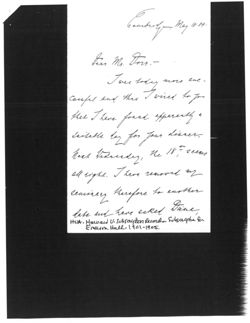 Cambridge May 11
Dear Mr. Dorr,—
I was today more suc-
cessful and thus I wired to you
that I have found apparently a
suitable day for your dinner.
Next Wednesday, the 18th, seems
all right. I have removed my
seminary therefore to another
date and have asked Dana
HUA. Harvard U. Subscription Records
Emerson Hall. 1901-1905